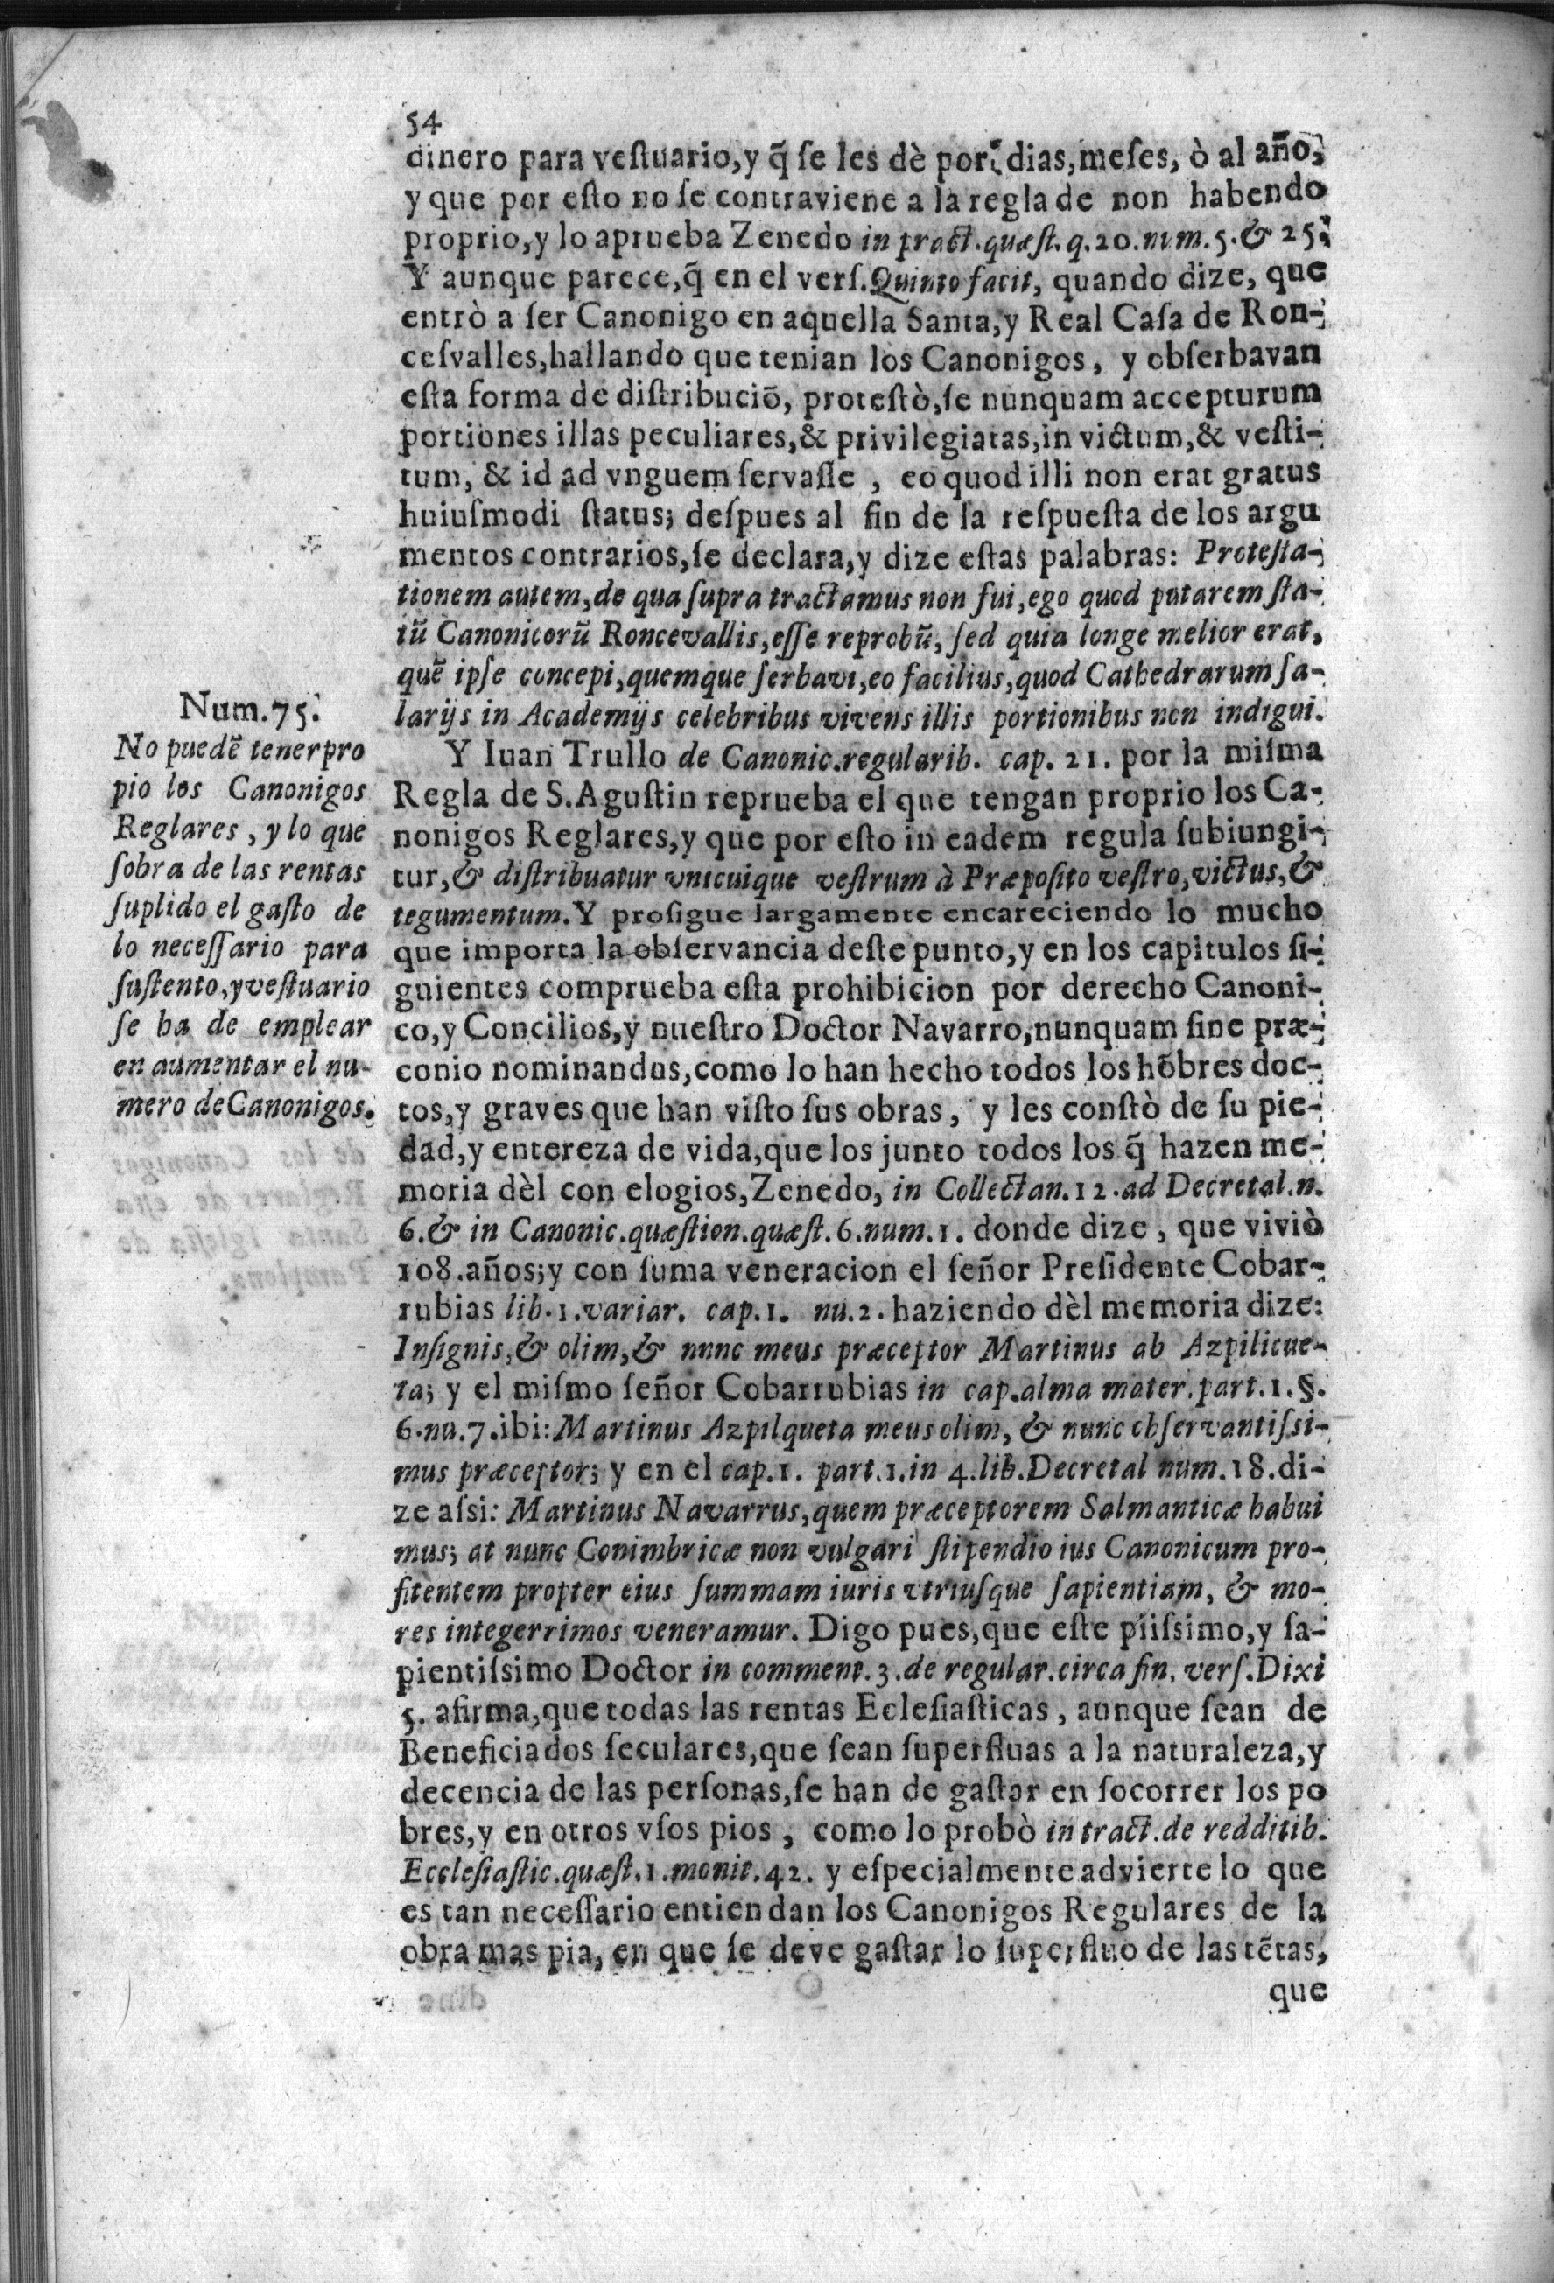 54
dinero para vestuario, y q̃ se les dè por dias, meses, ò al año,
y que por esto no se contraviene a la regla de non habendo
proprio, y lo aprueba Zenedo in pract. quæst. q. 20. num. 5. & 25.
Y aunque parece, q̃ en el vers. Quinto facit, quando dize, que
entrò a ser Canonigo en aquella Santa, y Real Casa de Ron-
cesvalles, hallando que tenian los Canonigos, y obserbavan
esta forma de distribuciō, protestò, se nunquam accepturum
portiones illas peculiares, & privilegiatas, in victum, & vesti-
tum, & id ad vnguem servasse, eo quod illi non erat gratus
huiusmodi status; despues al fin de la respuesta de los argu
mentos contrarios, se declara, y dize estas palabras: Protesta-
tionem autem, de qua supra tractamus non fui, ego quod putarem sta-
tũ Canonicorũ Roncevallis, esse reprobũ, sed quia longe melior erat,
quẽ ipse concepi, quemque serbavi, eo facilius, quod Cathedrarum sa-
larijs in Academijs celebribus vivens illis portionibus non indigui.
Y Iuan Trullo de Canonic. regularib. cap. 21. por la misma
Regla de S. Agustin reprueba el que tengan proprio los Ca-
nonigos Reglares, y que por esto in eadem regula subiungi-
tur, & distribuatur vnicuique vestrum à Præposito vestro, victus, &
tegumentum. Y prosigue largamente encareciendo lo mucho
que importa la observancia deste punto, y en los capitulos si-
guientes comprueba esta prohibicion por derecho Canoni-
co, y Concilios, y nuestro Doctor Navarro, nunquam sine præ-
conio nominandus, como lo han hecho todos los hōbres doc-
tos, y graves que han visto sus obras, y les constò de su pie-
dad, y entereza de vida, que los junto todos los q̃ hazen me-
moria dèl con elogios, Zenedo, in Collectan. 12. ad Decretal. n.
6. & in Canonic. quæstion. quæst. 6. num. 1. donde dize, que viviò
108. años; y con suma veneracion el señor Presidente Cobar-
rubias lib. 1. variar. cap. 1. nu. 2. haziendo dèl memoria dize:
Insignis, & olim, & nunc meus præceptor Martinus ab Azpilicue-
ta; y el mismo señor Cobarrubias in cap. alma mater. part. 1. §.
6. nu. 7. ibi: Martinus Azpilqueta meus olim, & nunc observantissi-
mus præceptor; y en el cap. 1. part. 1. in 4. lib. Decretal num. 18. di-
ze assi: Martinus Navarrus, quem præceptorem Salmanticæ habui
mus; at nunc Conimbricæ non vulgari stipendio ius Canonicum pro-
fitentem propter eius summam iuris vtriusque sapientiam, & mo-
res integerrimos veneramur. Digo pues, que este piissimo, y sa-
pientissimo Doctor in comment. 3. de regular. circa fin. vers. Dixi
5. afirma, que todas las rentas Eclesiasticas, aunque sean de
Beneficiados seculares, que sean superfluas a la naturaleza, y
decencia de las personas, se han de gastar en socorrer los po
bres, y en otros vsos pios, como lo probò in tract. de redditib.
Ecclesiastic. quæst. 1. monit. 42. y especialmente advierte lo que
es tan necessario entiendan los Canonigos Regulares de la
obra mas pia, en que se deve gastar lo superfluo de las rẽtas,
que
Num. 75.
No puedẽ tener pro
pio los Canonigos
Reglares, y lo que
sobra de las rentas
suplido el gasto de
lo necessario para
sustento, y vestuario
se ha de emplear
en aumentar el nu-
mero de Canonigos.